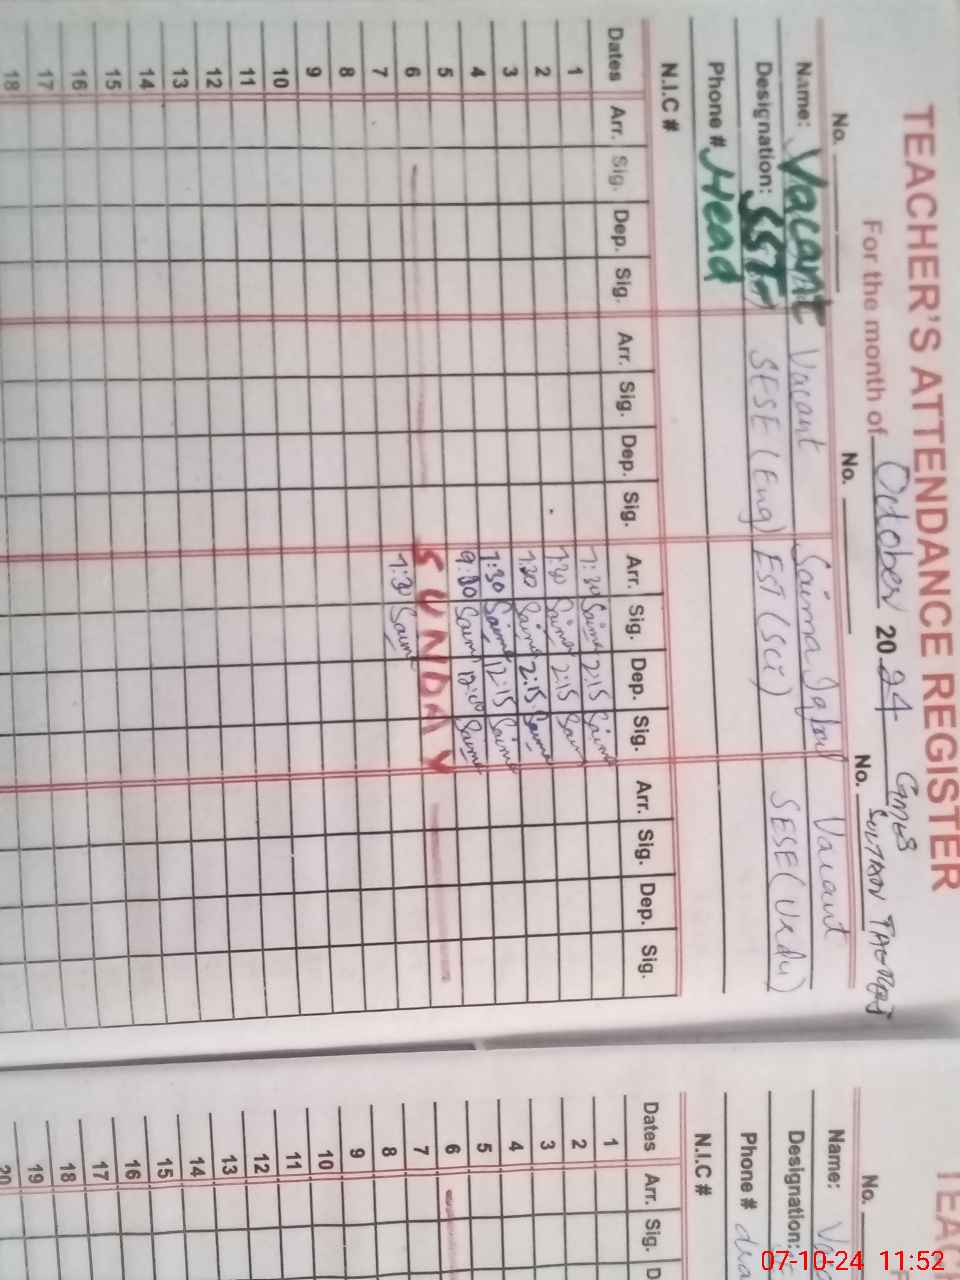 TEACHER'S ATTENDANCE REGISTER
For the month of October 2024 GMES
SULTAN
No. No. No.
Name: Vacant Vacant Saima Iqbal Vacant
Designation: SST SESE (Eng) EST (Sci) SESE (Urdu)
Phone # Head
N.I.C #
Dates Arr. Sig. Dep. Sig. Arr. Sig. Dep. Sig. Arr. Sig. Dep. Sig. Arr. Sig. Dep. Sig.
1 7:30 Saima 2:15 Saima
2 7:30 Saima 2:15 Saima
3 7:30 Saima 2:15 Saima
4 7:30 Saima 12:15 Saima
5 Saima 12:00 Saima
6 SUNDAY
7 7:30 Saima
8
9
10
11
12
13
14
15
16
17
18
TEAC
No.
Name:
Designation:
Phone #
N.I.C #
Dates Arr. Sig. D
1
2
3
4
5
6
7
8
9
10
11
12
13
14
15
16
17
18
19
20
07-10-24 11:52